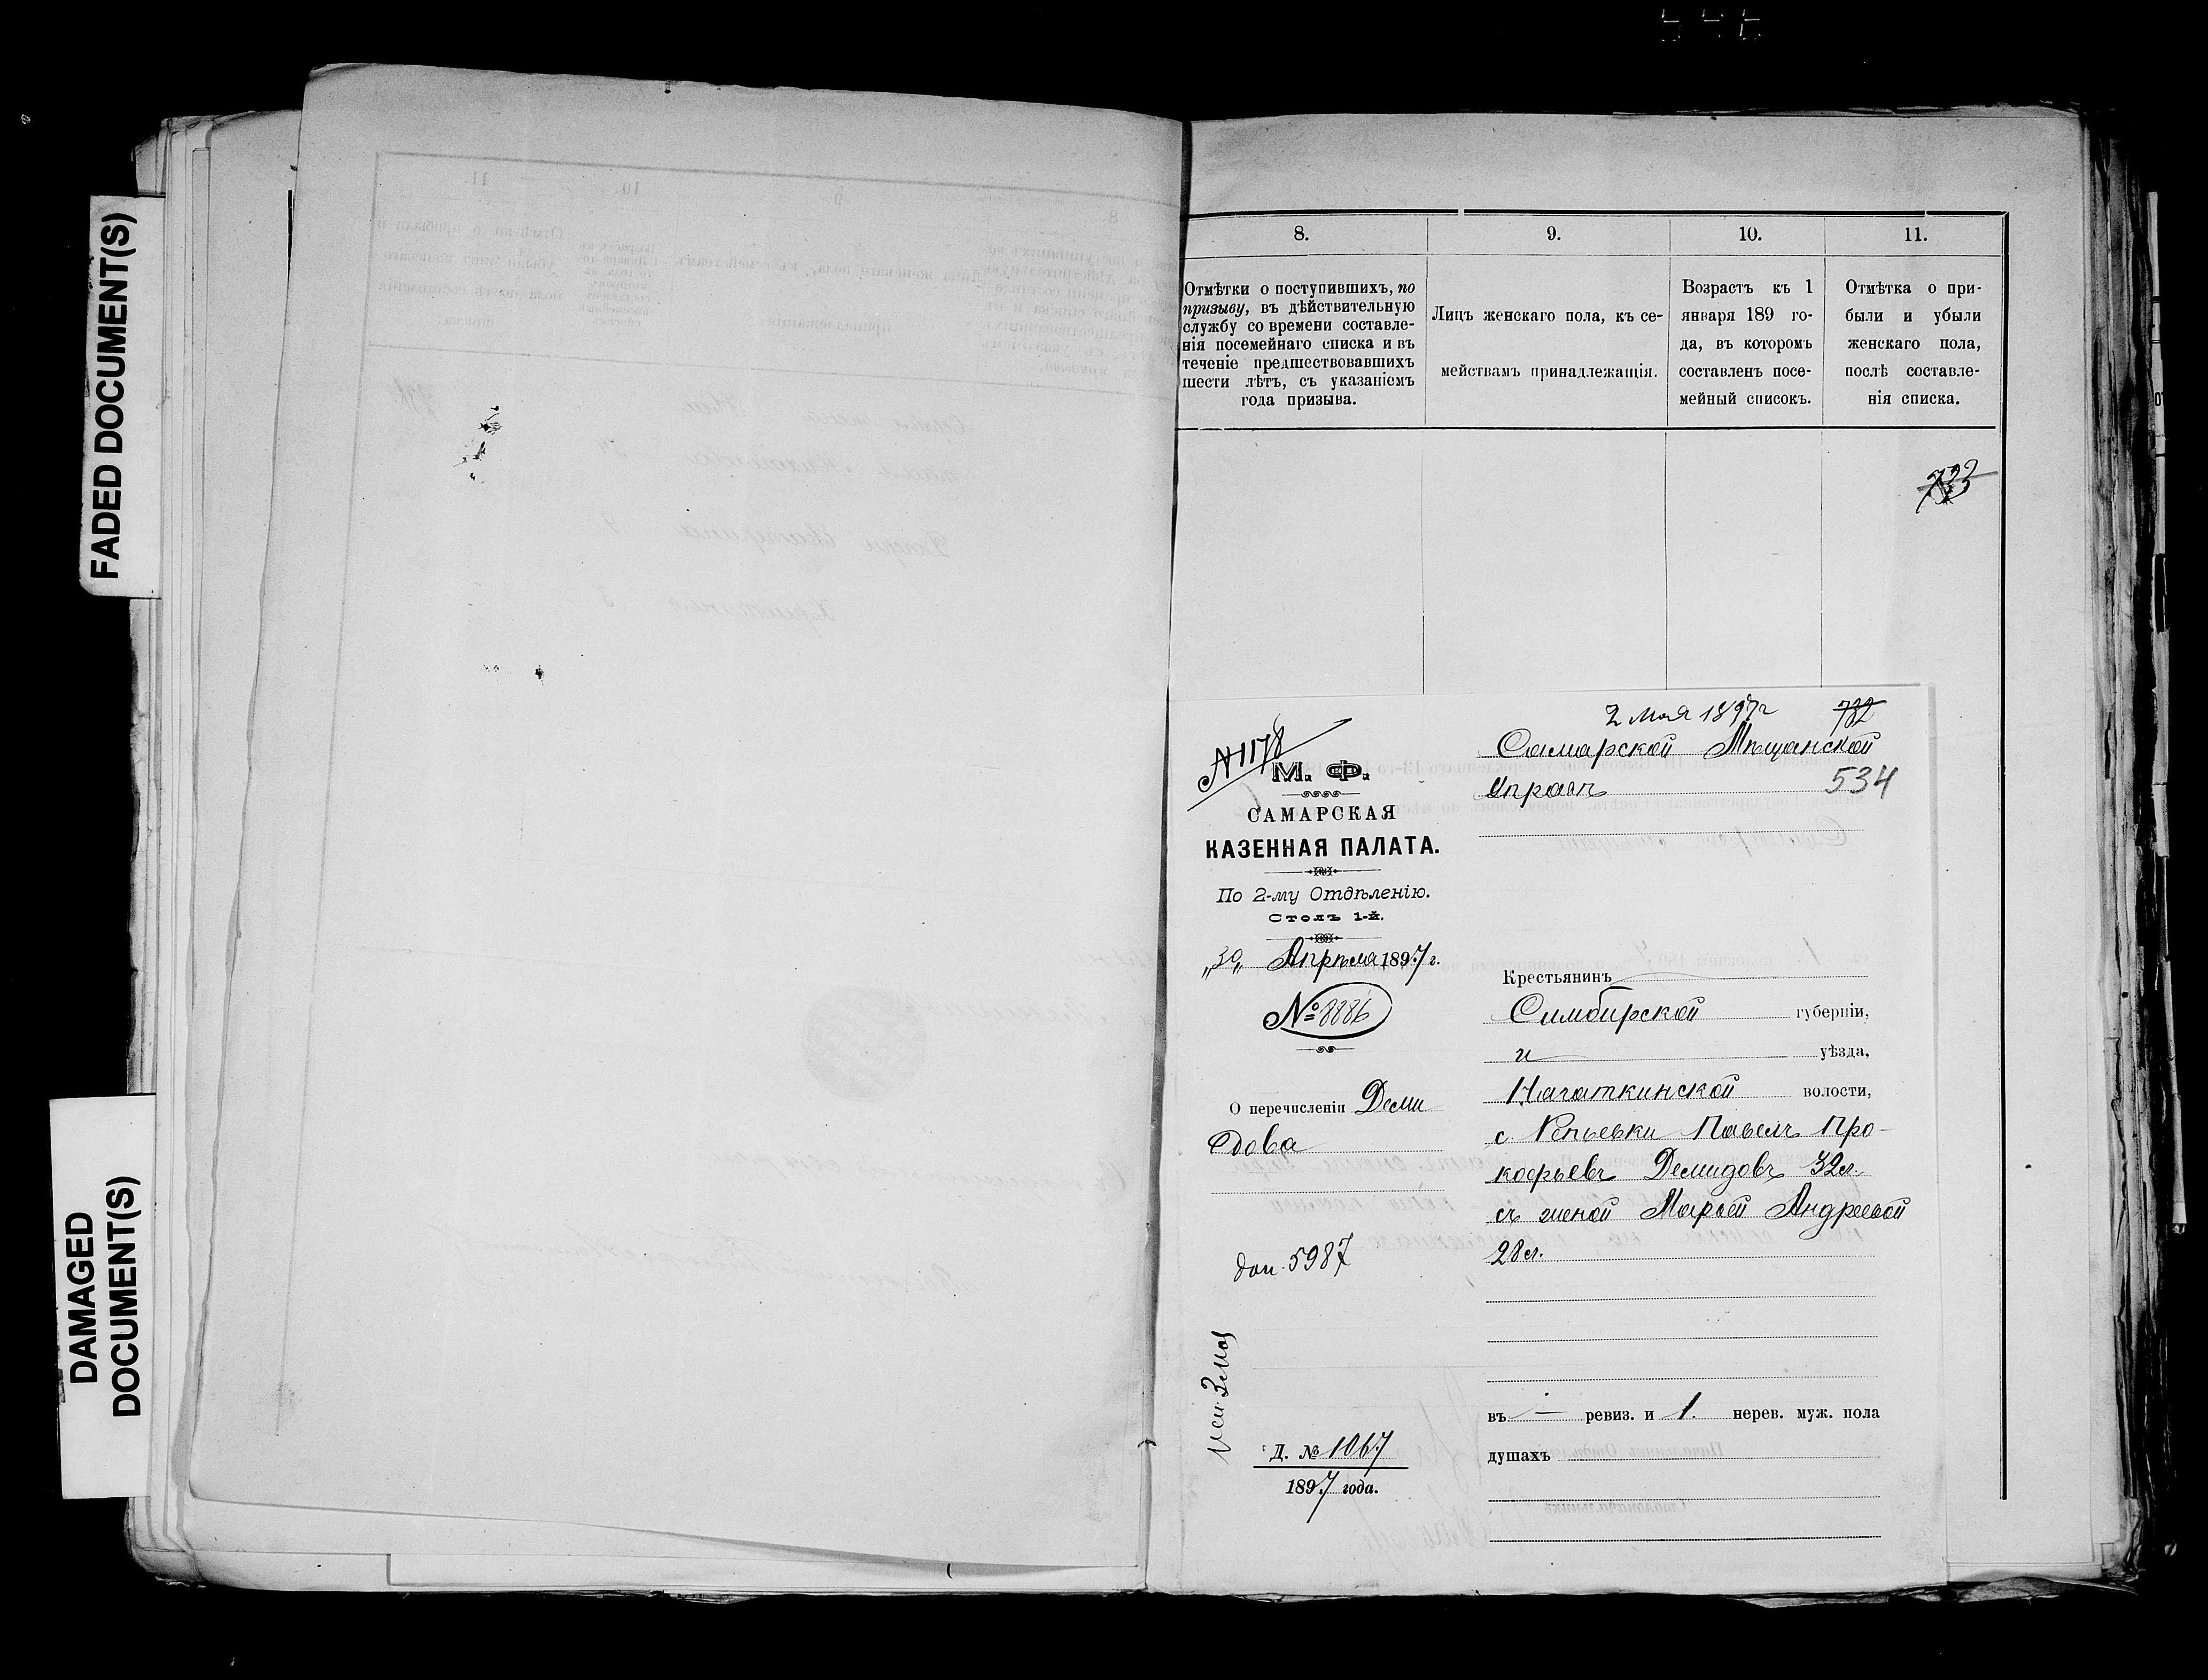 FADED DOCUMENT(S)
DAMAGED
DOCUMENT(S)
8.
9.
10.
11.
Отмѣтки о поступившихъ, по
призыву, въ дѣйствительную
службу со времени составле-
нія посемейнаго списка и въ
теченіе предшествовавшихъ
шести лѣтъ, съ указаніемъ
года призыва.
Лицъ женскаго пола, къ се-
мействамъ принадлежащія.
Возрастъ къ 1
января 189 го-
да, въ которомъ
составленъ посе-
мейный списокъ.
Отмѣтка о при-
были и убыли
женскаго пола,
послѣ составле-
нія списка.
733
2 Мая 1897 г
732
№ 1178
М. Ф.
САМАРСКАЯ
КАЗЕННАЯ ПАЛАТА.
По 2-му Отдѣленію.
Столъ 1-й.
„30„ Апрѣля 1897 г.
№ 8886
О перечисленіи Деми
дова
доп. 5987
Д. № 1067
1897 года.
Самарской Мѣщанской
Управѣ
534
Крестьянинъ
Симбирской губерніи,
и уѣзда,
Нагаткинской волости,
с. Репьевки Павелъ Про-
кофьевъ Демидовъ 32 л.
съ женой Марьей Андреевой
28 л.
въ — ревиз. и 1. нерев. муж. пола
душахъ